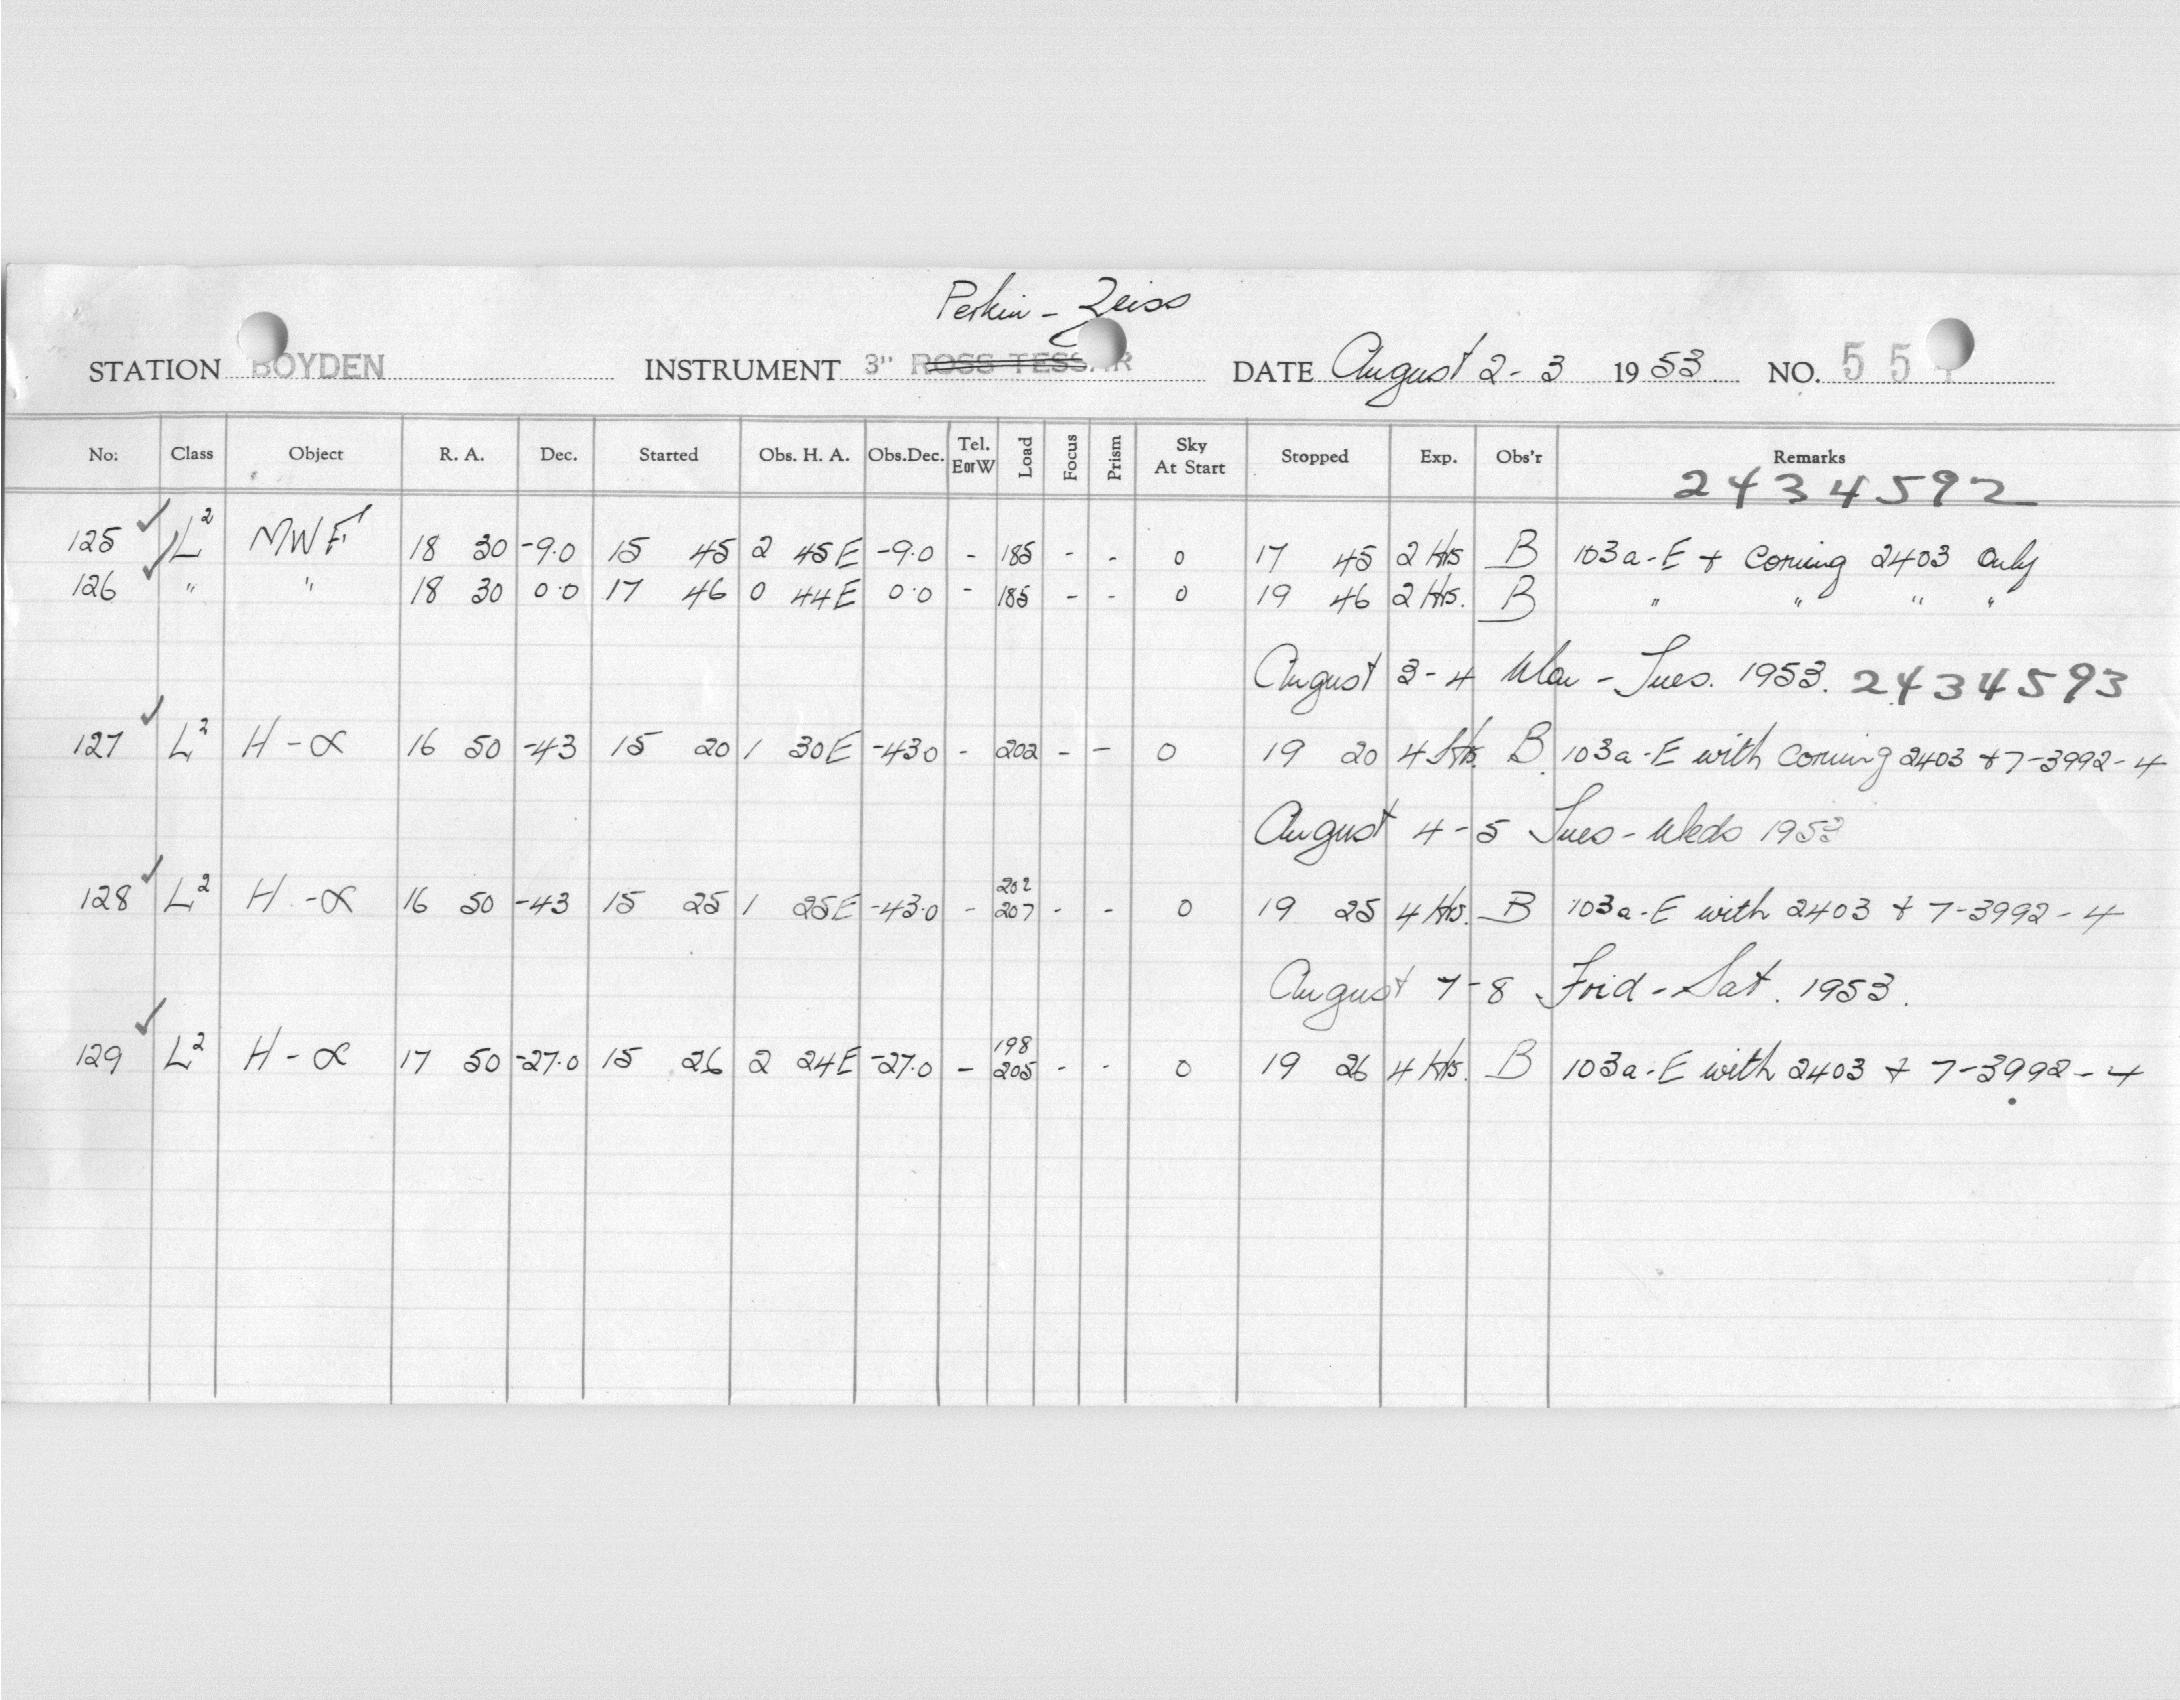 Perkin - Zeiss
STATION BOYDEN INSTRUMENT 3" ROSS TESSAR DATE August 2-3 1953 NO. 55
No: Class Object R. A. Dec. Started Obs. H. A. Obs.Dec. Tel. E or W Load Focus Prism Sky At Start Stopped Exp. Obs'r Remarks
2434592
125 ✓ L² MWF 18 30 -9.0 15 45 2 45E -9.0 - 185 - - 0 17 45 2 Hrs B 103a-E + Corning 2403 Only
126 ✓ " " 18 30 0.0 17 46 0 44E 0.0 - 185 - - 0 19 46 2 Hrs. B " " " "
August 3-4 Mon - Tues. 1953. 2434593
127 ✓ L² H-α 16 50 -43 15 20 1 30E -43.0 - 202 - - 0 19 20 4 Hrs. B. 103a-E with Corning 2403 + 7-3992-4
August 4-5 Tues - Weds 1953
128 ✓ L² H-α 16 50 -43 15 25 1 25E -43.0 - 202 207 - - 0 19 25 4 Hrs. B 103a-E with 2403 + 7-3992-4
August 7-8 Frid - Sat. 1953.
129 ✓ L² H-α 17 50 -27.0 15 26 2 24E -27.0 - 198 205 - - 0 19 26 4 Hrs. B 103a-E with 2403 + 7-3992-4